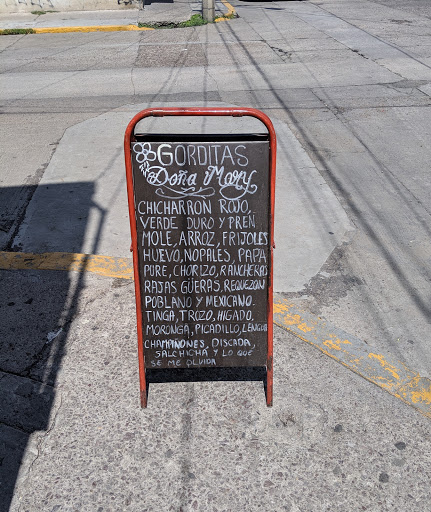 GORDITAS
Doña Mary
CHICHARRON ROJO,
VERDE DURO Y PREN
MOLE, ARROZ, FRIJOLES
HUEVO, NOPALES, PAPA
PURE, CHORIZO, RANCHERAS
RAJAS GÜERAS, REQUEZON
POBLANO Y MEXICANO.
TINGA, TROZO, HIGADO,
MORONGA, PICADILLO, LENGUA
CHAMPIÑONES, DISCADA,
SALCHICHA Y LO QUE
SE ME OLVIDA